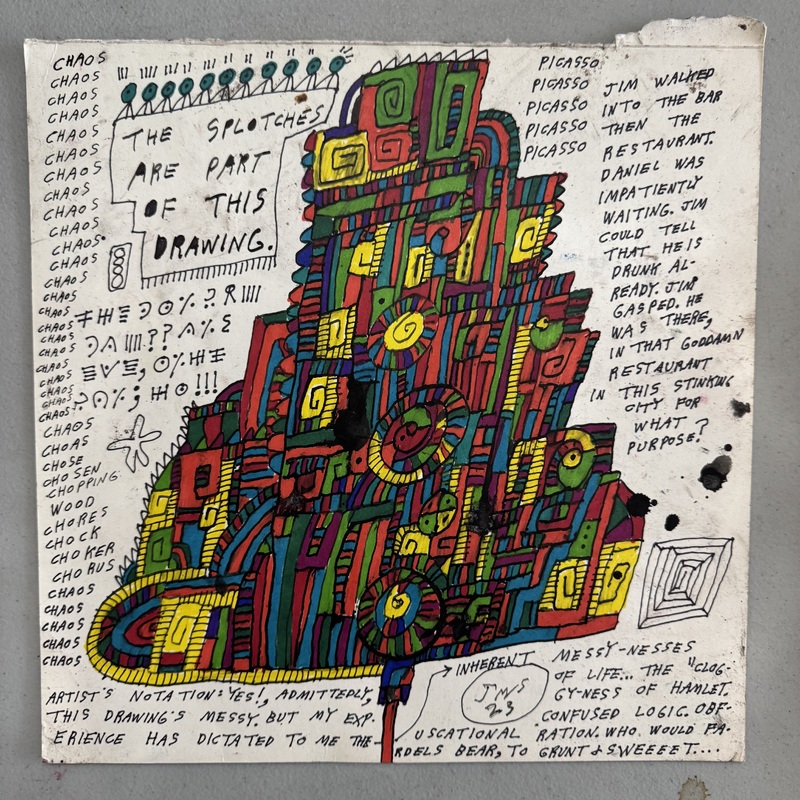 CHAOS
CHAOS
CHAOS
CHAOS
CHAOS
CHAOS
CHAOS
CHAOS
CHAOS
CHAOS
CHAOS.
CHAOS
CHAOS
CHAOS
CHAOS
CHAOS
CHAOS
CHAOS
CHAOS
CHAOS
CHAOS
CHAOS
CHAOS
CHAOS
CHOAS
CHOSE
CHOSEN
CHOPPING
WOOD
CHORES
CHOCK
CHOKER
CHORUS
CHAOS
CHAOS
CHAOS
CHAOS
CHAOS
THE SPLOTCHES
ARE PART
OF THIS
DRAWING.
PICASSO
PICASSO
PICASSO
PICASSO
PICASSO
JIM WALKED
INTO THE BAR
THEN THE
RESTAURANT.
DANIEL WAS
IMPATIENTLY
WAITING. JIM
COULD TELL
THAT HE IS
DRUNK AL-
READY. JIM
GASPED. HE
WAS THERE,
IN THAT GODDAMN
RESTAURANT
IN THIS STINKING
CITY FOR
WHAT
PURPOSE?
ARTIST'S NOTATION: YES!, ADMITTEDLY,
THIS DRAWING'S MESSY. BUT MY EXP-
ERIENCE HAS DICTATED TO ME THE
INHERENT MESSY-NESSES
OF LIFE... THE "CLOG-
GY-NESS OF HAMLET.
CONFUSED LOGIC. OBF-
USCATIONAL RATION. WHO WOULD FA-
RDELS BEAR, TO GRUNT & SWEEEET....
JMS
23